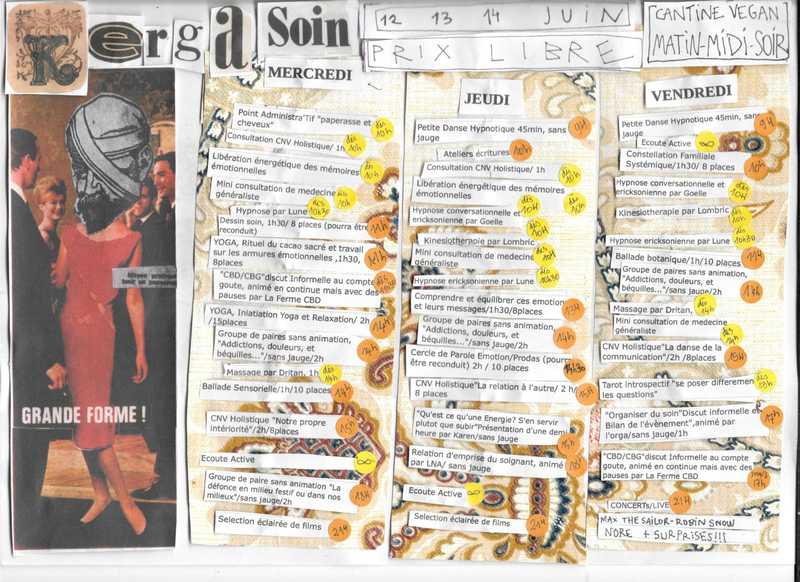 Kerga Soin
12 13 14 JUIN
PRIX LIBRE
CANTINE VEGAN
MATIN-MIDI-SOIR
GRANDE FORME !
MERCREDI
Point Administra'Tif "paperasse et
cheveux"
dès 10h
Consultation CNV Holistique/ 1h
dès 10h
Libération énergétique des mémoires
émotionnelles
Mini consultation de medecine
généraliste
Hypnose par Lune
dès 10h30
Dessin soin, 1h30/ 8 places (pourra être
reconduit)
11h
YOGA, Rituel du cacao sacré et travail
sur les armures émotionnelles ,1h30,
8places
"CBD/CBG"discut Informelle au compte
goute, animé en continue mais avec des
pauses par La Ferme CBD
YOGA, Iniatiation Yoga et Relaxation/ 2h
/15places
14h
Groupe de paires sans animation,
"Addictions, douleurs, et
béquilles..."/sans jauge/2h
14h
Massage par Dritan, 1h
Ballade Sensorielle/1h/10 places
CNV Holistique "Notre propre
intériorité"/2h/8places
Ecoute Active
∞
Groupe de paires sans animation "La
défonce en milieu festif ou dans nos
milieux"/sans jauge/2h
Selection éclairée de films
21h
JEUDI
Petite Danse Hypnotique 45min, sans
jauge
Ateliers écritures
10h
Consultation CNV Holistique/ 1h
Libération énergétique des mémoires
émotionnelles
Hypnose conversationnelle et
ericksonienne par Goelle
dès 10H
Kinesiotherapie par Lombric
Mini consultation de medecine
généraliste
Hypnose ericksonienne par Lune
dès 10h30
Comprendre et équilibrer ces emotions
et leurs messages/1h30/8places
Groupe de paires sans animation,
"Addictions, douleurs, et
béquilles..."/sans jauge/2h
14h
Cercle de Parole Emotion/Prodas (pourra
être reconduit) 2h / 10 places
14h30
CNV Holistique"La relation à l'autre/ 2 h/
8 places
"Qu'est ce qu'une Energie? S'en servir
plutot que subir"Présentation d'une demi
heure par Karen/sans jauge
Relation d'emprise du soignant, animé
par LNA/ sans jauge
Ecoute Active
∞
Selection éclairée de films
21h
VENDREDI
Petite Danse Hypnotique 45min, sans
jauge
9h
Ecoute Active
∞
Constellation Familiale
Systémique/1h30/ 8 places
10h
Hypnose conversationnelle et
ericksonienne par Goelle
dès 10H
Kinesiotherapie par Lombric
Hypnose ericksonienne par Lune
dès 10h30
Ballade botanique/1h/10 places
11h
Groupe de paires sans animation,
"Addictions, douleurs, et
béquilles..."/sans jauge/2h
Massage par Dritan,
dès 14h
Mini consultation de medecine
généraliste
CNV Holistique"La danse de la
communication"/2h /8places
15h
Tarot introspectif "se poser differement
les questions"
"Organiser du soin"Discut informelle et
Bilan de l'évènement",animé par
l'orga/sans jauge/1h
17h
"CBD/CBG"discut Informelle au compte
goute, animé en continue mais avec des
pauses par La Ferme CBD
17h
CONCERTs/LIVE
21H
MAX THE SAILOR-ROBIN SNOW
NORE + SURPRISES!!!